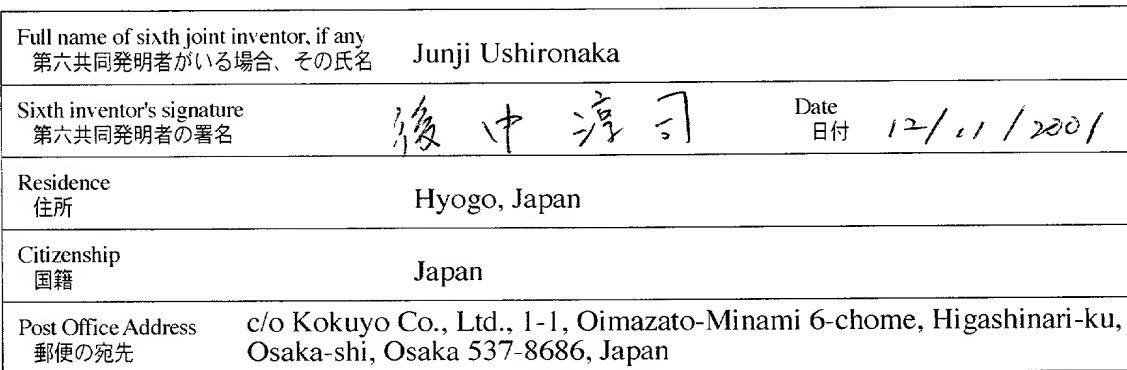 Full name of sixth joint inventor, if any
第六共同発明者がいる場合、その氏名
Junji Ushironaka
Sixth inventor's signature
第六共同発明者の署名
後中淳司
Date
日付
12/11/2001
Residence
住所
Hyogo, Japan
Citizenship
国籍
Japan
Post Office Address
郵便の宛先
c/o Kokuyo Co., Ltd., 1-1, Oimazato-Minami 6-chome, Higashinari-ku,
Osaka-shi, Osaka 537-8686, Japan